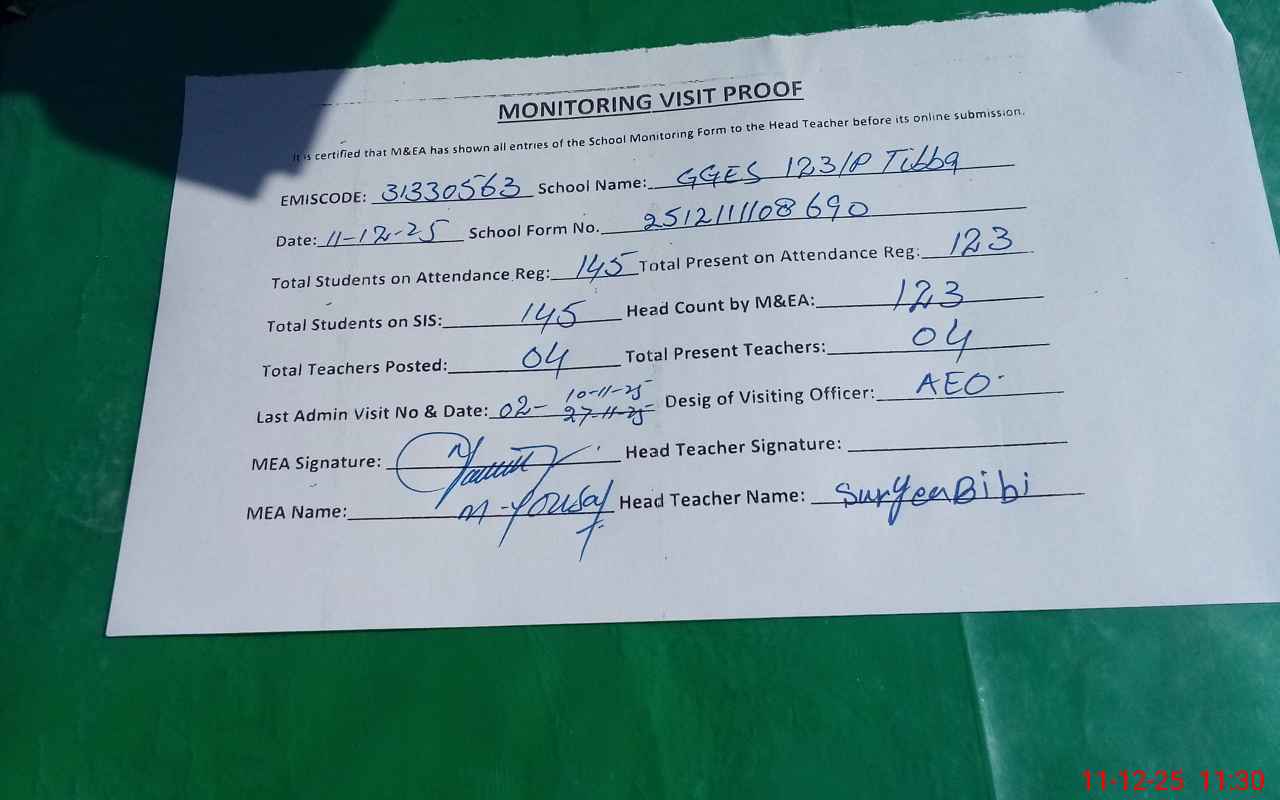 MONITORING VISIT PROOF
It is certified that M&EA has shown all entries of the School Monitoring Form to the Head Teacher before its online submission.
EMISCODE: 31330563 School Name: GGES 123/P Tibba
Date: 11-12-25 School Form No. 2512111108690
Total Students on Attendance Reg: 145 Total Present on Attendance Reg: 123
Total Students on SIS: 145 Head Count by M&EA: 123
Total Teachers Posted: 04 Total Present Teachers: 04
Last Admin Visit No & Date: 02- 10-11-25 27-11-25 Desig of Visiting Officer: AEO
MEA Signature: Head Teacher Signature:
MEA Name: M-Yousaf Head Teacher Name: Bibi
11-12-25 11:30